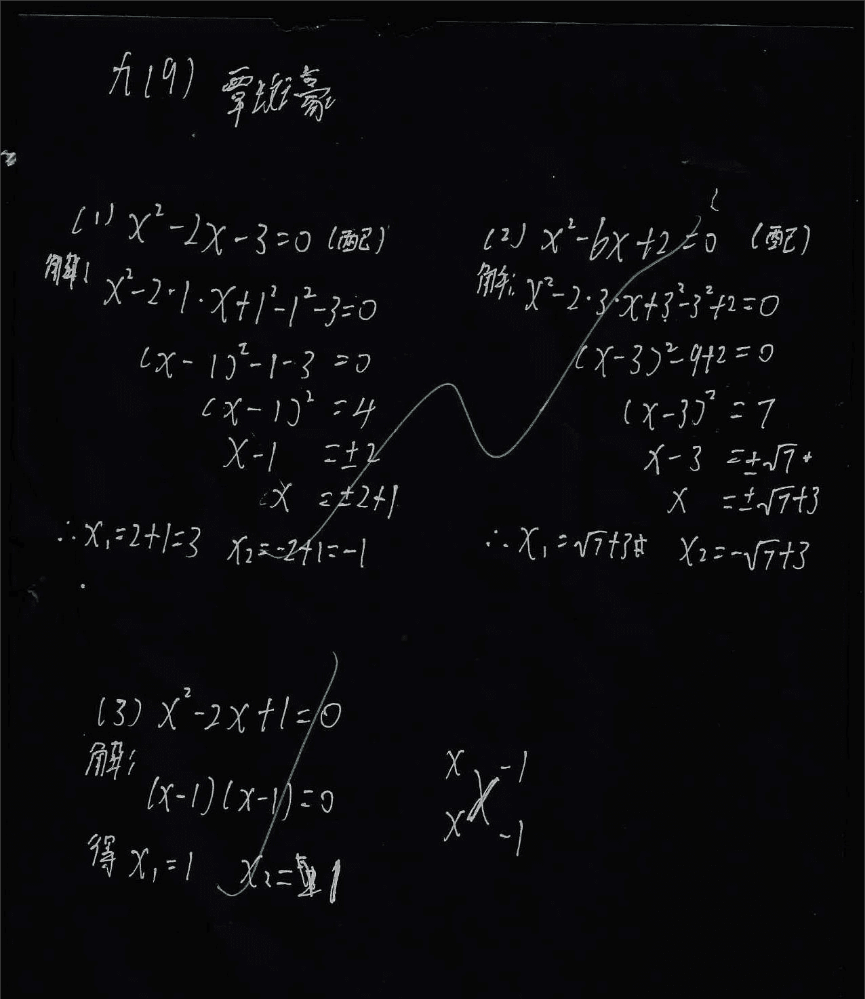 九(9) 覃班豪
(1) x²-2x-3=0 (配)
解: x²-2·1·x+1²-1²-3=0
(x-1)²-1-3=0
(x-1)²=4
x-1=±2
x=±2+1
∴x₁=2+1=3 x₂=-2+1=-1
(2) x²-6x+2=0 (配)
解: x²-2·3·x+3²-3²+2=0
(x-3)²-9+2=0
(x-3)²=7
x-3=±√7
x=±√7+3
∴x₁=√7+3 x₂=-√7+3
(3) x²-2x+1=0
解:
(x-1)(x-1)=0
得 x₁=1 x₂=1
x -1
x -1